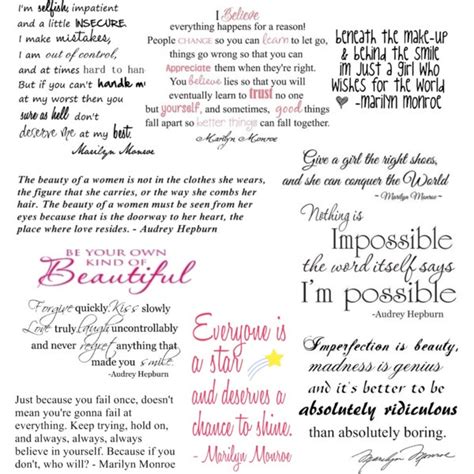 I'm selfish, impatient
and a little INSECURE.
I make mistakes,
I am out of control,
and at times hard to han
But if you can't handle m
at my worst then you
sure as hell don't
deserve me at my best.
Marilyn Monroe
I Believe
everything happens for a reason!
People CHANGE so you can learn to let go,
things go wrong so that you can
Appreciate them when they're right.
You believe lies so that you will
eventually learn to trust no one
but yourself, and sometimes, good things
fall apart so better things can fall together.
Marilyn Monroe
beneath the make-up
& behind the smile
im Just a girl who
wishes for the world
-marilyn monroe
The beauty of a women is not in the clothes she wears,
the figure that she carries, or the way she combs her
hair. The beauty of a women must be seen from her
eyes because that is the doorway to her heart, the
place where love resides. - Audrey Hepburn
Give a girl the right shoes,
and she can conquer the World
~ Marilyn Monroe ~
BE YOUR OWN
KIND OF
Beautiful
Nothing is
Impossible
the word itself says
I'm possible
-Audrey Hepburn
Forgive quickly. Kiss slowly
Love truly, laugh uncontrollably
and never regret anything that
made you smile.
-Audrey Hepburn
Everyone is
a star
and deserves a
chance to shine.
Marilyn Monroe
Imperfection is beauty,
madness is genius
and it's better to be
absolutely ridiculous
than absolutely boring.
Marilyn Monroe
Just because you fail once, doesn't
mean you're gonna fail at
everything. Keep trying, hold on,
and always, always, always
believe in yourself. Because if you
don, who will? - Marilyn Monroe